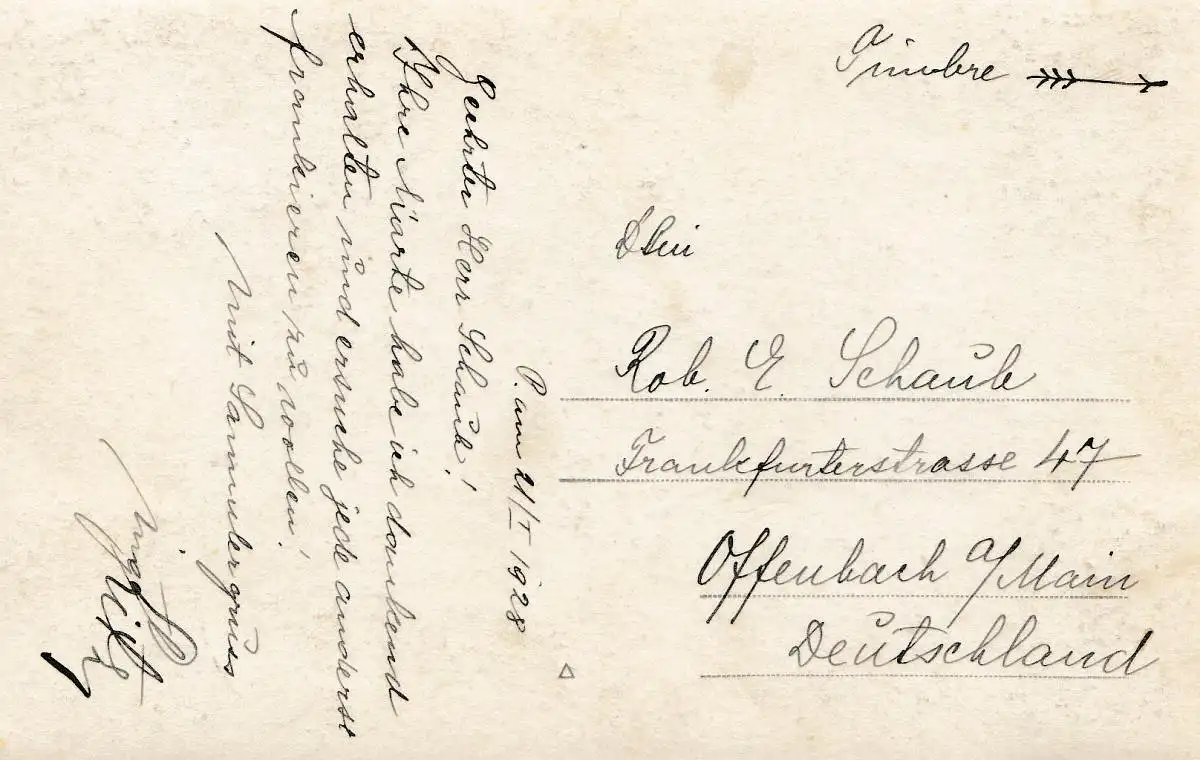 P. am 21/I 1928
Geehrter Herr Schaub!
Ihre Karte habe ich dankend
erhalten und ersuche jede anderst
frankieren zu wollen!
Mit Sammlergruss
Timbre
Rob. E. Schaub
Frankfurterstrasse 47
Offenbach a/Main
Deutschland